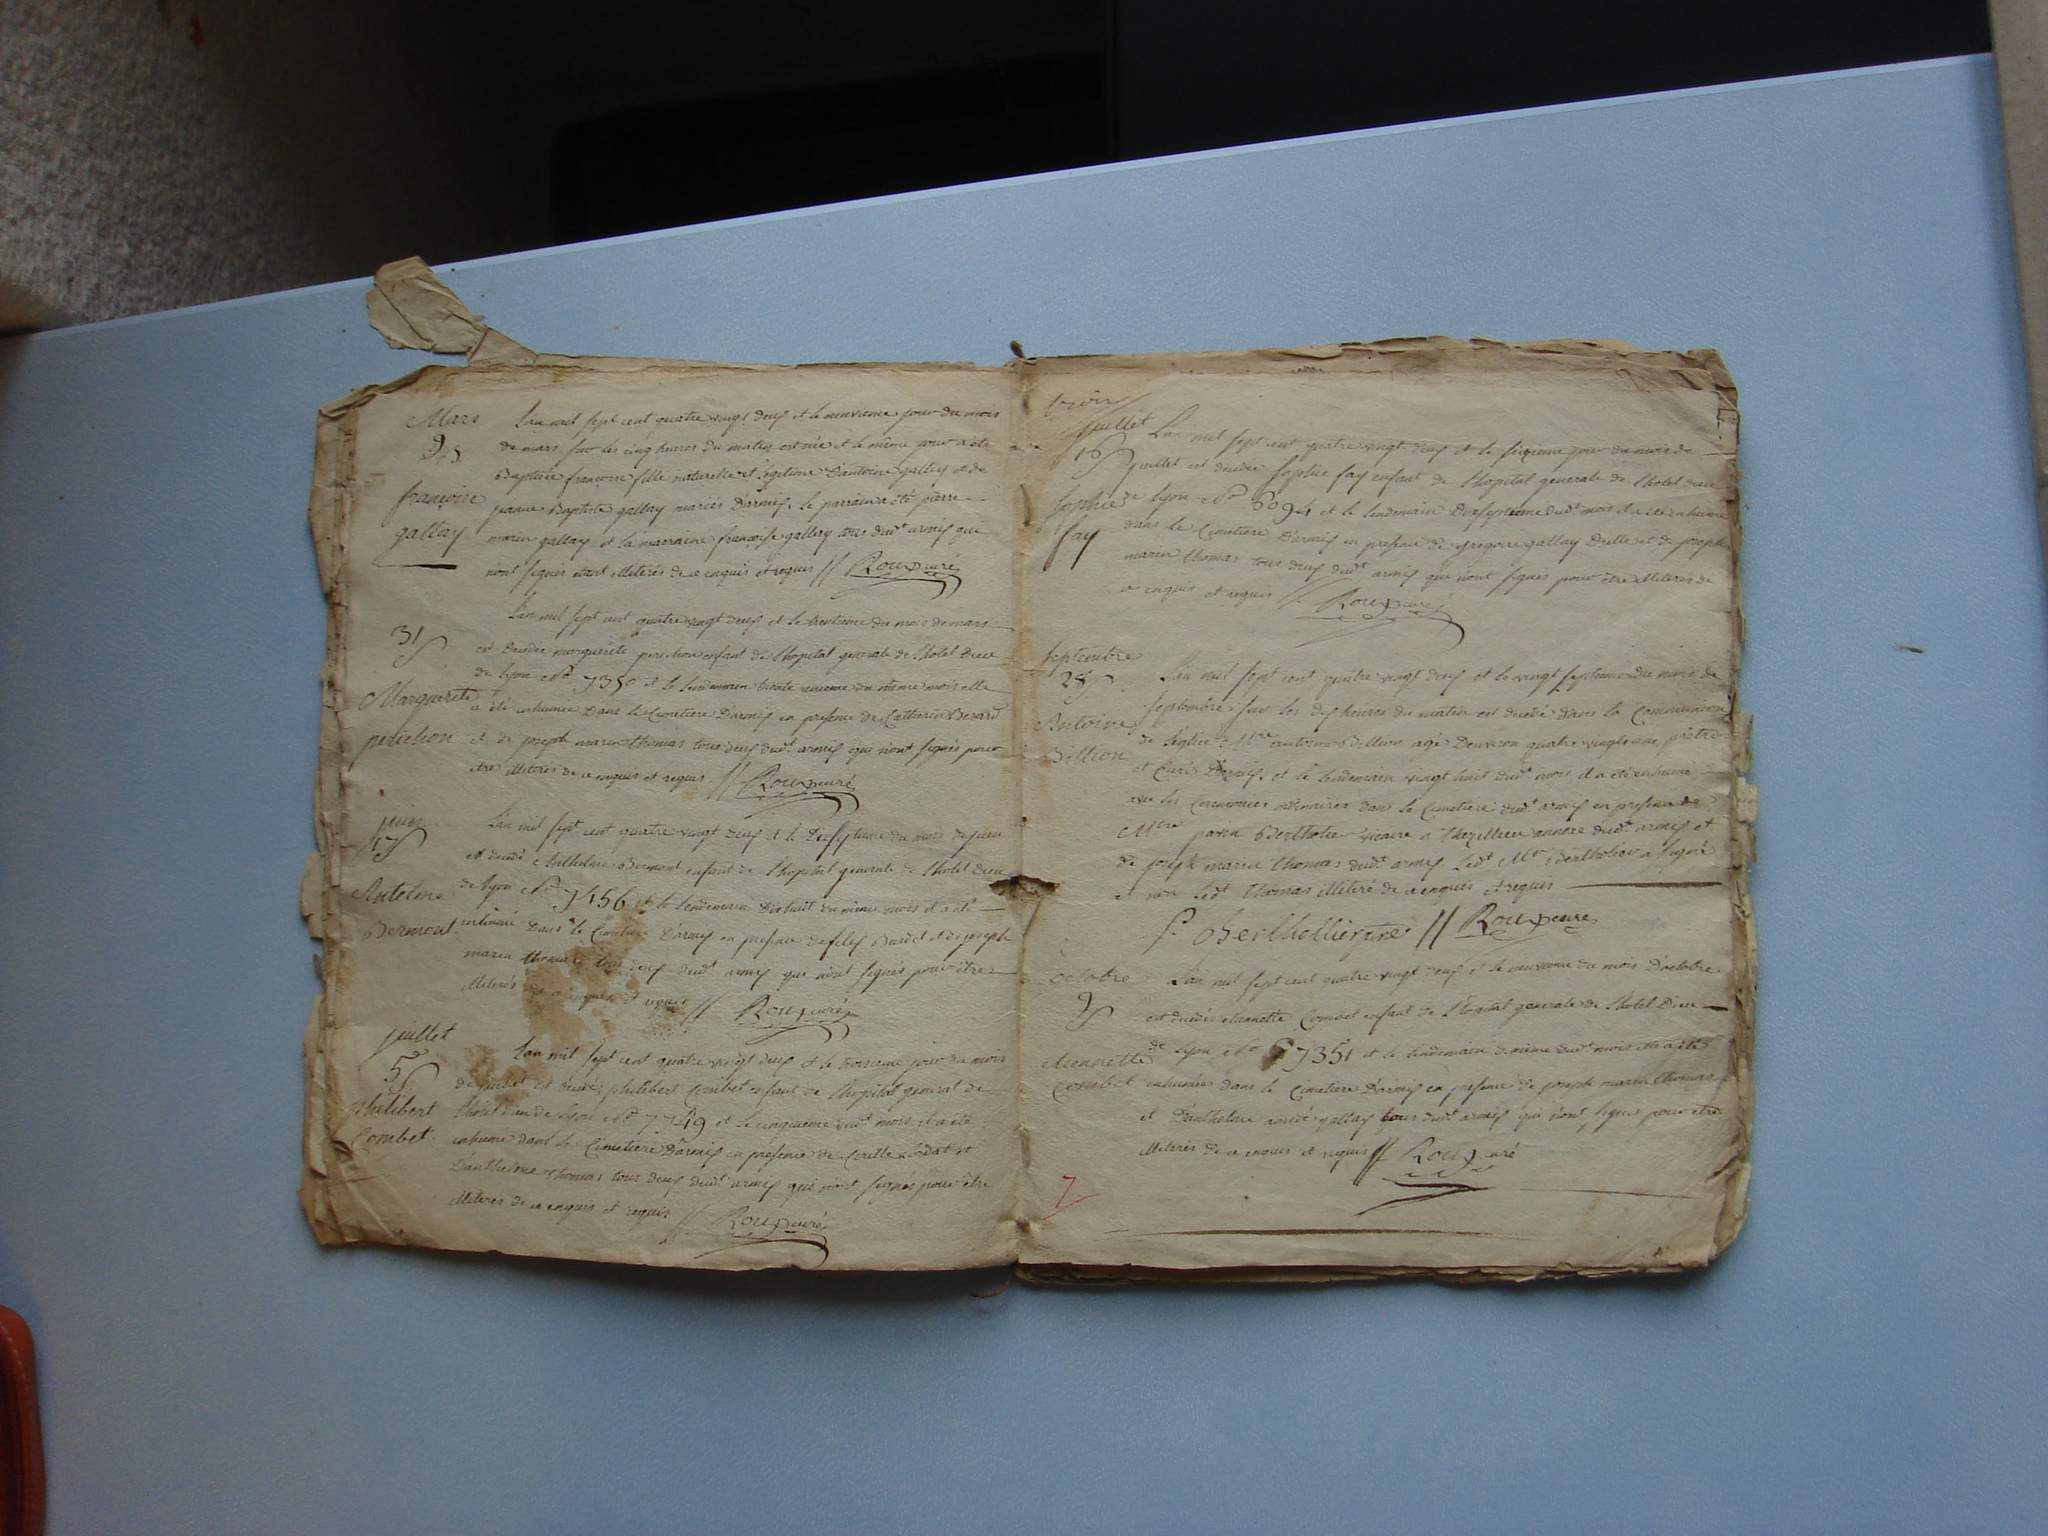 Mars
9
françoise
gallay
Lan mil sept cent quatre vingt deux et le neuvieme jour du mois
de mars sur les cinq heures du matin est née et le même jour a été
Baptisée françoise fille naturelle et legitime D'antoine gallay et de
jeanne Baptiste gallay mariés D'armix. Le parrain a été pierre
marin gallay et la marraine françoise gallay tous dud.t armix qui
n'ont signés etant illiterés de ce enquis et requis // Roux curé
31
Marguerite
perichon
Lan mil sept cent quatre vingt deux et le trentieme du mois de mars
est Decedée marguerite perichon enfant de l'hopital generale de l'hotel Dieu
de lyon N.o 7350 et le lendemain trente unieme du même mois elle
a été inhumée dans le Cimetiere D'armix en presence de Catherin Berard
et de joseph marin thomas tous deux dud.t armix qui n'ont signés pour
etre illiterés de ce enquis et requis // Roux curé
juin
17
Antelme
Bermont
Lan mil sept cent quatre vingt deux et le Dix septieme du mois de juin
est decedé Anthelme Bermont enfant de l'hopital generale de l'hotel Dieu
de lyon N.o 7456 et le lendemain Dix huit du même mois il a été
inhumé dans le Cimetiere D'armix en presence de Bardet et de joseph
marin thomas tous deux dud.t armix qui n'ont signés pour être
illiterés de ce enquis et requis // Roux curé
juillet
5
Philibert
Combet
Lan mil sept cent quatre vingt deux et le troisieme jour du mois
de juillet est decedé philibert Combet enfant de l'hopital general de
l'hotel Dieu de Lyon N.o 7749 et le cinquieme dud.t mois il a été
inhumé dans le Cimetiere D'armix en présence de
D'anthelme thomas tous deux dud.t armix qui n'ont signés pour être
illiterés de ce enquis et requis // Roux curé
juillet
16
Sophie
fay
Lan mil sept cent quatre vingt deux et le seizieme jour du mois de
juillet est decedée Sophie fay enfant de l'hopital generale de l'hotel dieu
de lyon N.o 6094 et le lendemain Dix septieme dud.t mois et a été inhumée
dans le Cimetiere D'armix en presence de gregoire gallay Drille et de joseph
marin thomas tous deux dud.t armix qui n'ont signés pour être illiterés de
ce enquis et requis // Roux curé
septembre
28
Antoine
Billion
Lan mil sept cent quatre vingt deux et le vingt septieme du mois de
septembre sur les dix heures du matin est decedé dans la Communion
de l'eglise M.re antoine Billion agé D'environ quatre vingts ans, prêtre
et Curé D'armix, et le lendemain vingt huit dud.t mois il a été inhumé
avec les Ceremonies ordinaires dans le Cimetiere dud.t armix en presence de
M.tre Bertholier vicaire a thezillieu annexe dud.t armix et
de joseph marin thomas dud.t armix led.t M.re Bertholier a signé
et non led.t thomas illiteré de ce enquis et requis
Berthollier ptre // Roux curé
octobre
9
etiennette
Combet
Lan mil sept cent quatre vingt deux et le neuvieme du mois D'octobre
est decedée etiennette Combet enfant de l'hopital generale de l'hotel Dieu
de lyon N.o 7351 et le lendemain dixieme dud.t mois elle a été
inhumée dans le Cimetiere D'armix en presence de joseph marin thomas
et D'anthelme gallay tous dud.t armix qui n'ont signés pour etre
illiterés de ce enquis et requis // Roux curé
7